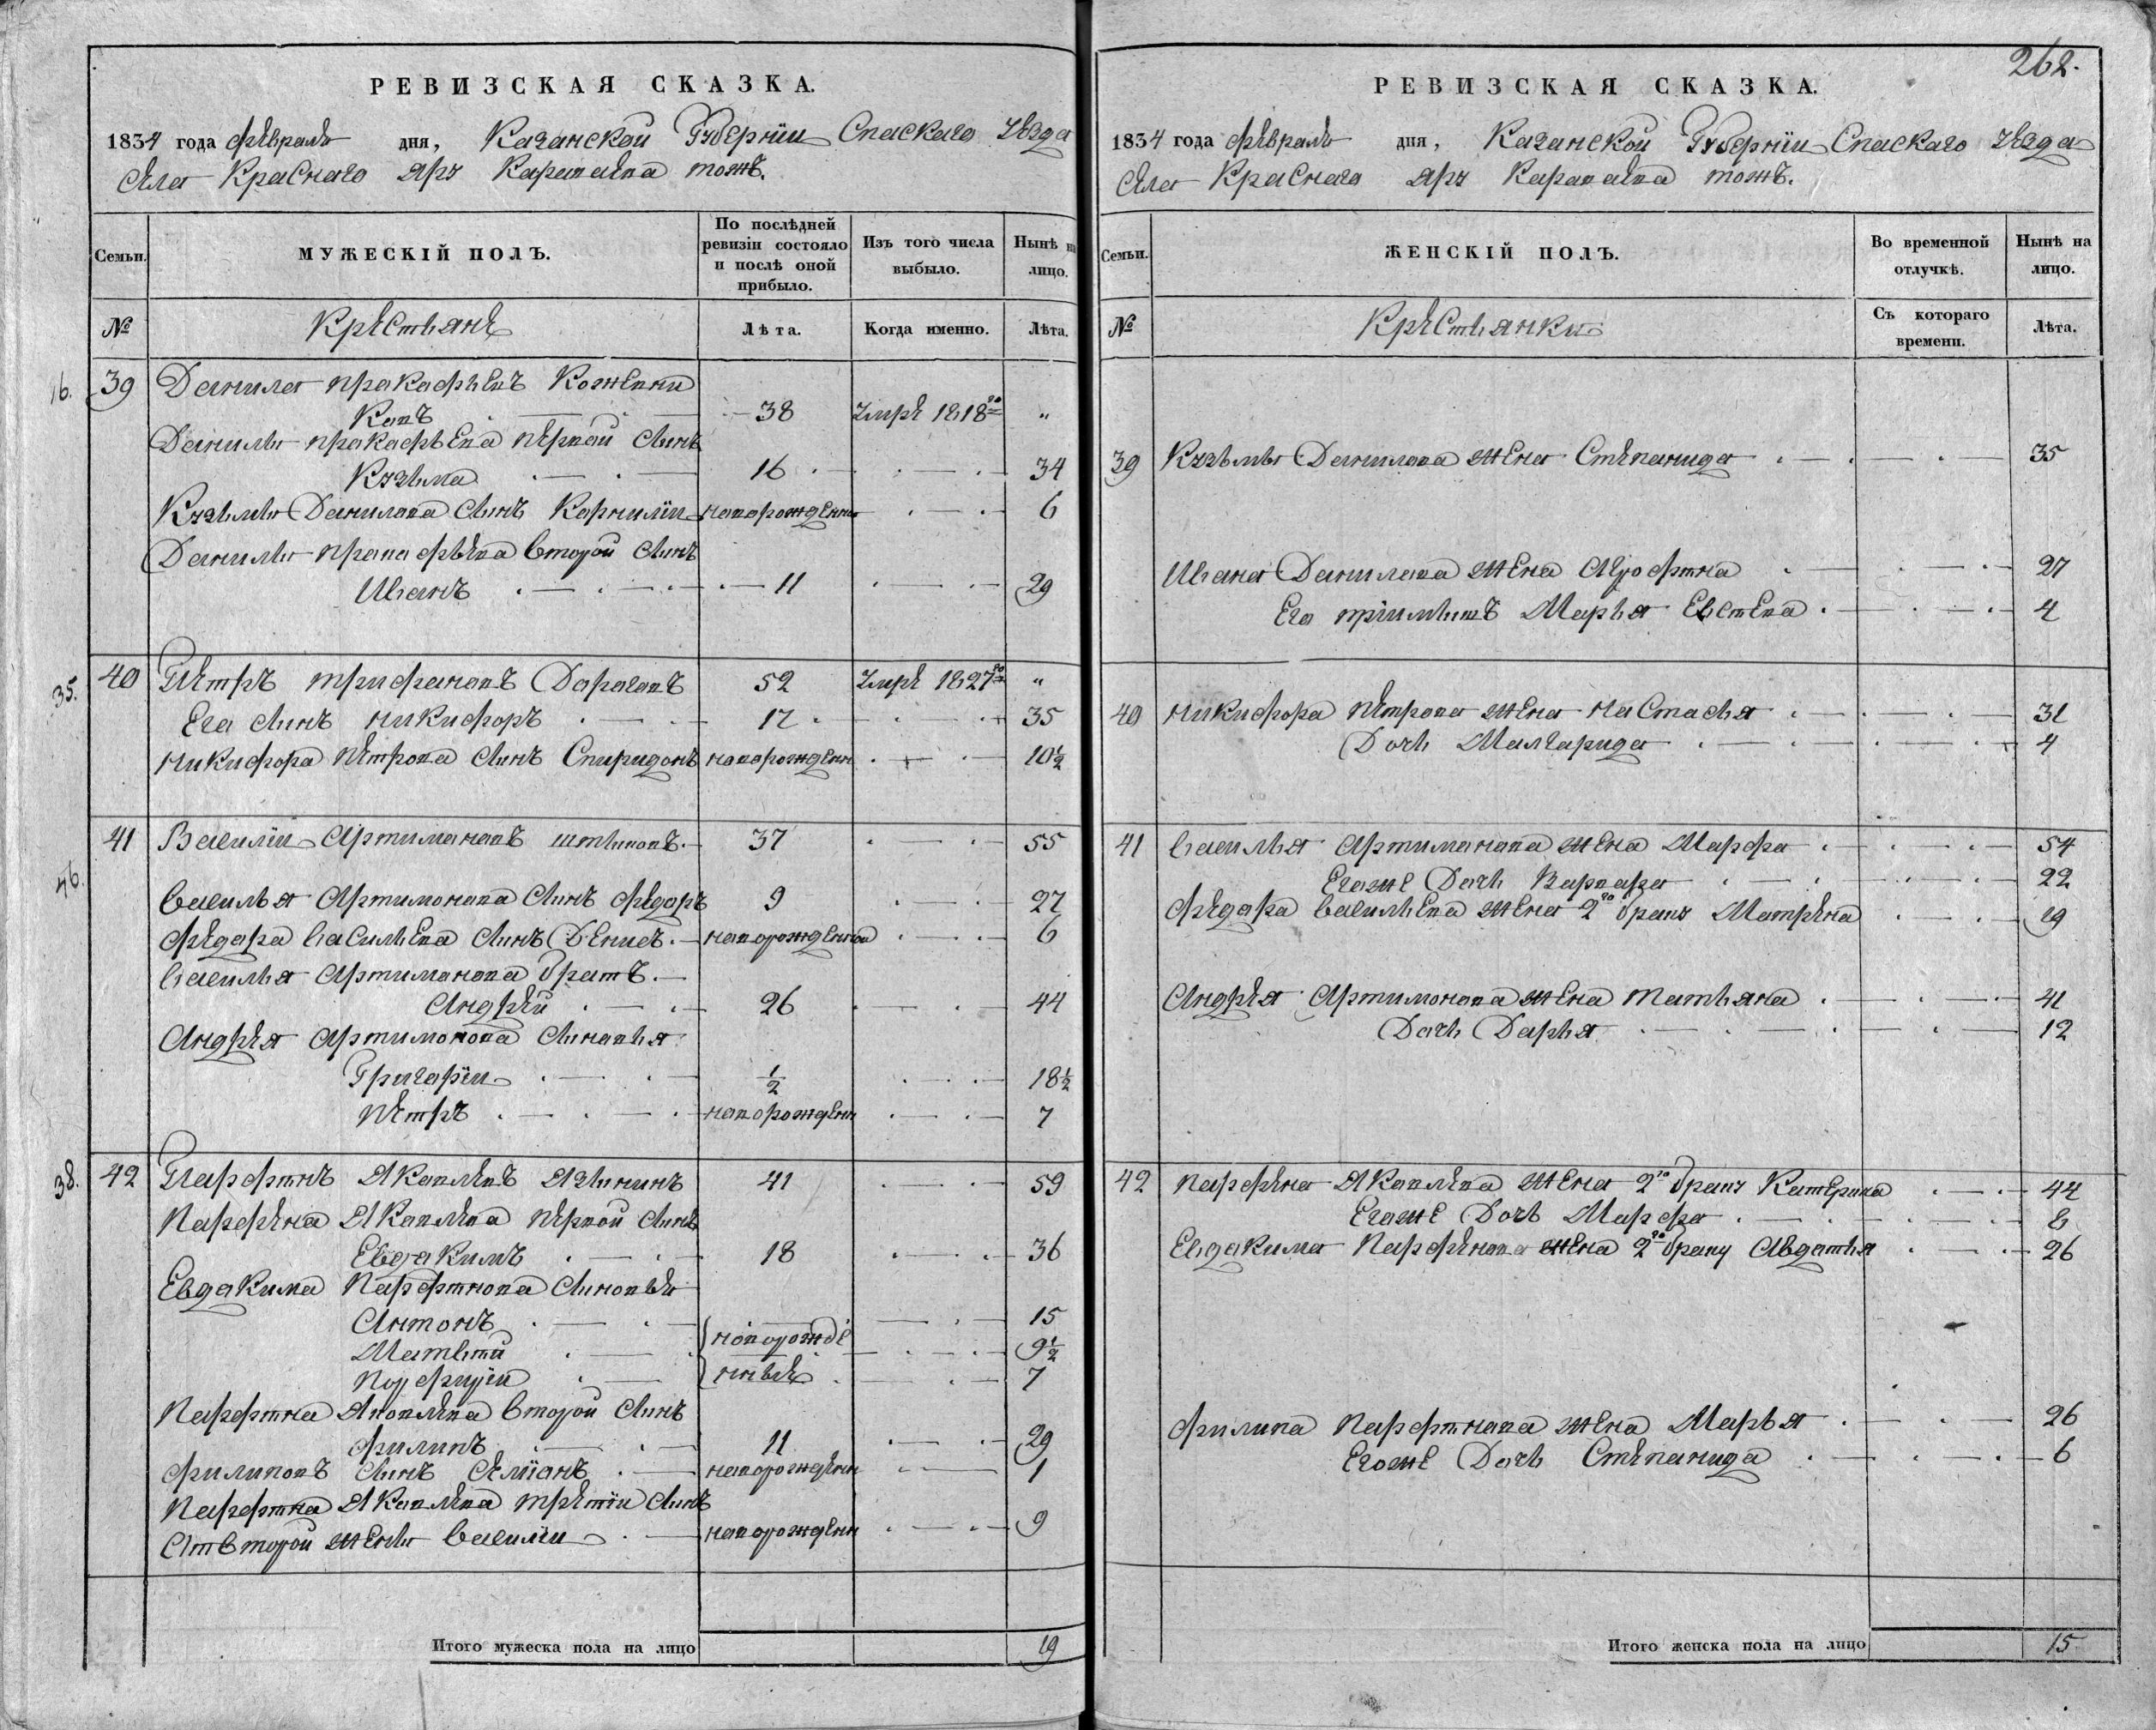 262.
РЕВИЗСКАЯ СКАЗКА.
1834 года февраля дня, Казанской Губернїи Спаскаго уезда
села Краснаго яру тожъ.
Семьи. МУЖЕСКІЙ ПОЛЪ. По послѣдней ревизіи состояло и послѣ оной прибыло. Изъ того числа выбыло. Нынѣ на лицо.
№ Крестьяне Лѣта. Когда именно. Лѣта.
16. 39 Данила пракафьевъ
38 умре 1818го "
Данилы пракафьева первой сынъ
Кузьма 16 34
Кузьмы Данилава сынъ Карнилїи наварожденны 6
Данилы пракафьева второй сынъ
Иванъ 11 29
35. 40 Петръ трифанавъ Дарагавъ 52 умре 1827го "
Ега сынъ никифоръ 17 35
никифора Петрова сынъ Спиридонъ новорожденн 10½
46. 41 Василїи Артиманавъ 37 55
василья Артимонава сынъ федаръ 9 27
федара васильева сынъ Денисъ наворожденной 6
василья Артиманава братъ
Андрей 26 44
Андрея Артимонова сыновья
Григарїи ½ 18½
Петръ наворожденн 7
38. 42 Парфѣнъ Яковлевъ Язынинъ 41 59
Парфена Яковлева первой сынъ
Евдакимъ 18 36
Евдакима Парфѣнова сыновьи
Антонъ 15
Матвѣй новорожде 9½
Порфирїи нныя 7
Парфѣна Яковлева второй сынъ
филипъ 11 29
филиповъ сынъ наворожденн 1
Парфѣна Яковлева третїи сынъ
отвторой жены василїи наворожденн 9
Итого мужеска пола на лицо 19
РЕВИЗСКАЯ СКАЗКА.
1834 года февраля дня, Казанской Губернїи Спаскаго уезда
села Краснаго яру тожъ.
Семьи. ЖЕНСКІЙ ПОЛЪ. Во временной отлучкѣ. Нынѣ на лицо.
№ Крестьянки Съ котораго времени. Лѣта.
39 Кузьмы Данилава жена Степанида 35
Ивана Данилава жена Аграфѣна 27
Ега Марья 4
40 никифора Петрова жена настасья 31
Дочь Маргарида 4
41 василья Артиманава жена Марфа 54
Егаже Дачь Варвара 22
федара васильева жена 2го браку Матрена 19
Андрея Артимонава жена татьяна 41
Дачь Дарья 12
42 парфена Яковлева жена 2го браку Катерина 44
Егаже Дочь Марфа 6
Евдакима Парфенова жена 2го браку Авдатья 26
филипа Парфѣнава жена Марья 26
Егоже Дочь Степанида 6
Итого женска пола на лицо 15